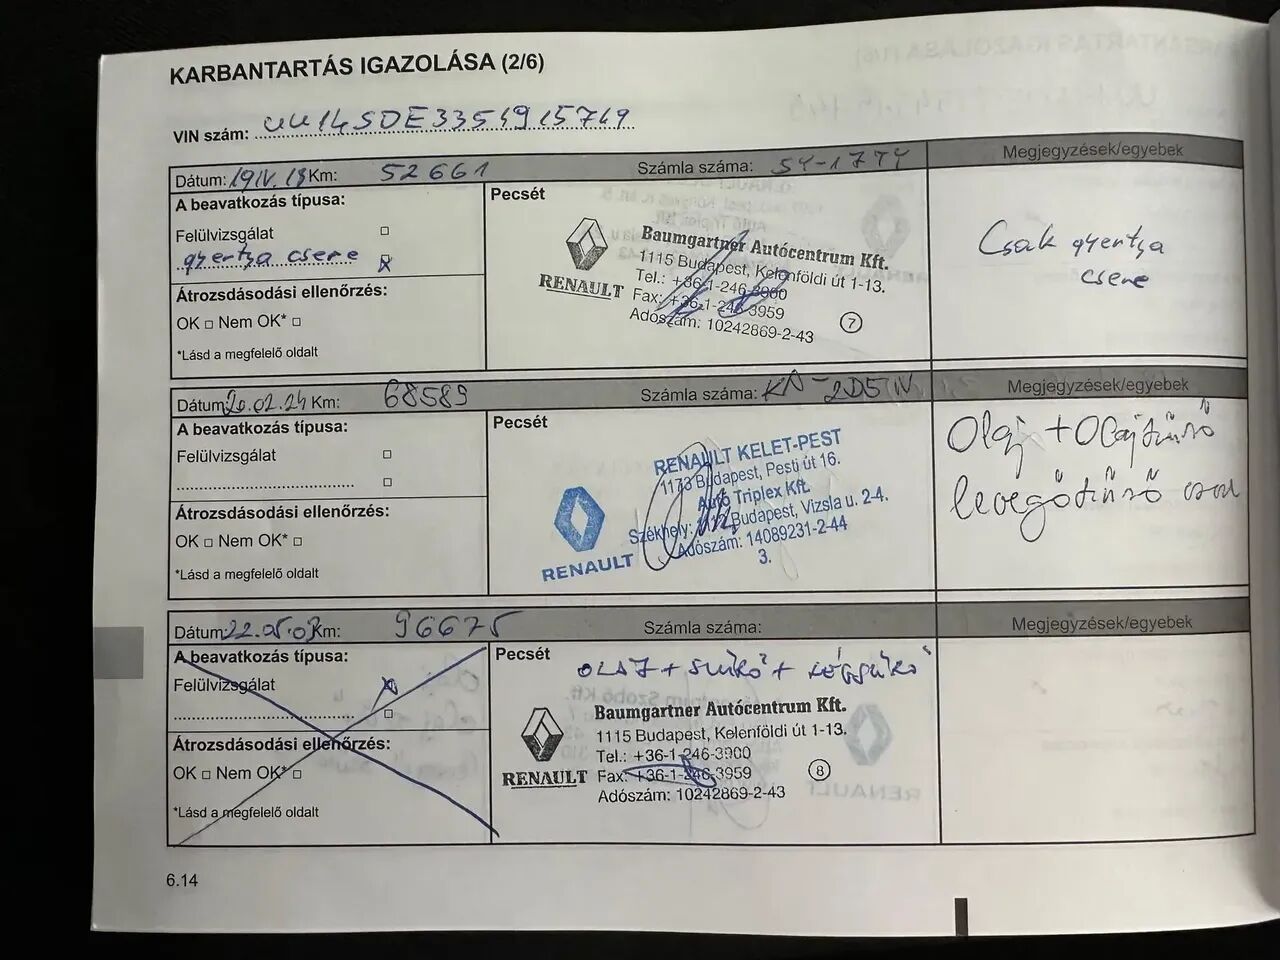 KARBANTARTÁS IGAZOLÁSA (2/6)
VIN szám: UU14SDE3354915749
Dátum: 19.IV.18 Km: 52661 Számla száma: Megjegyzések/egyebek
A beavatkozás típusa:
Felülvizsgálat
gyertya csere
Átrozsdásodási ellenőrzés:
OK Nem OK*
*Lásd a megfelelő oldalt
Pecsét
RENAULT
Baumgartner Autócentrum Kft.
1115 Budapest, Kelenföldi út 1-13.
Tel.: +36-1-246-3900
Fax: +36-1-246-3959
Adószám: 10242869-2-43
7
Csak gyertya
csere
Dátum: 20.02.24 Km: 68589 Számla száma: Megjegyzések/egyebek
A beavatkozás típusa:
Felülvizsgálat
Átrozsdásodási ellenőrzés:
OK Nem OK*
*Lásd a megfelelő oldalt
Pecsét
RENAULT
RENAULT KELET-PEST
1173 Budapest, Pesti út 16.
Autó Triplex Kft.
Székhely: Budapest, Vizsla u. 2-4.
Adószám: 14089231-2-44
3.
Olaj + Olajszűrő
levegőszűrő
Dátum: 22.05.03 Km: 96675 Számla száma: Megjegyzések/egyebek
A beavatkozás típusa:
Felülvizsgálat
Átrozsdásodási ellenőrzés:
OK Nem OK*
*Lásd a megfelelő oldalt
Pecsét
OLAJ + SZŰRŐ +
RENAULT
Baumgartner Autócentrum Kft.
1115 Budapest, Kelenföldi út 1-13.
Tel.: +36-1-246-3900
Fax: +36-1-246-3959
Adószám: 10242869-2-43
8
6.14